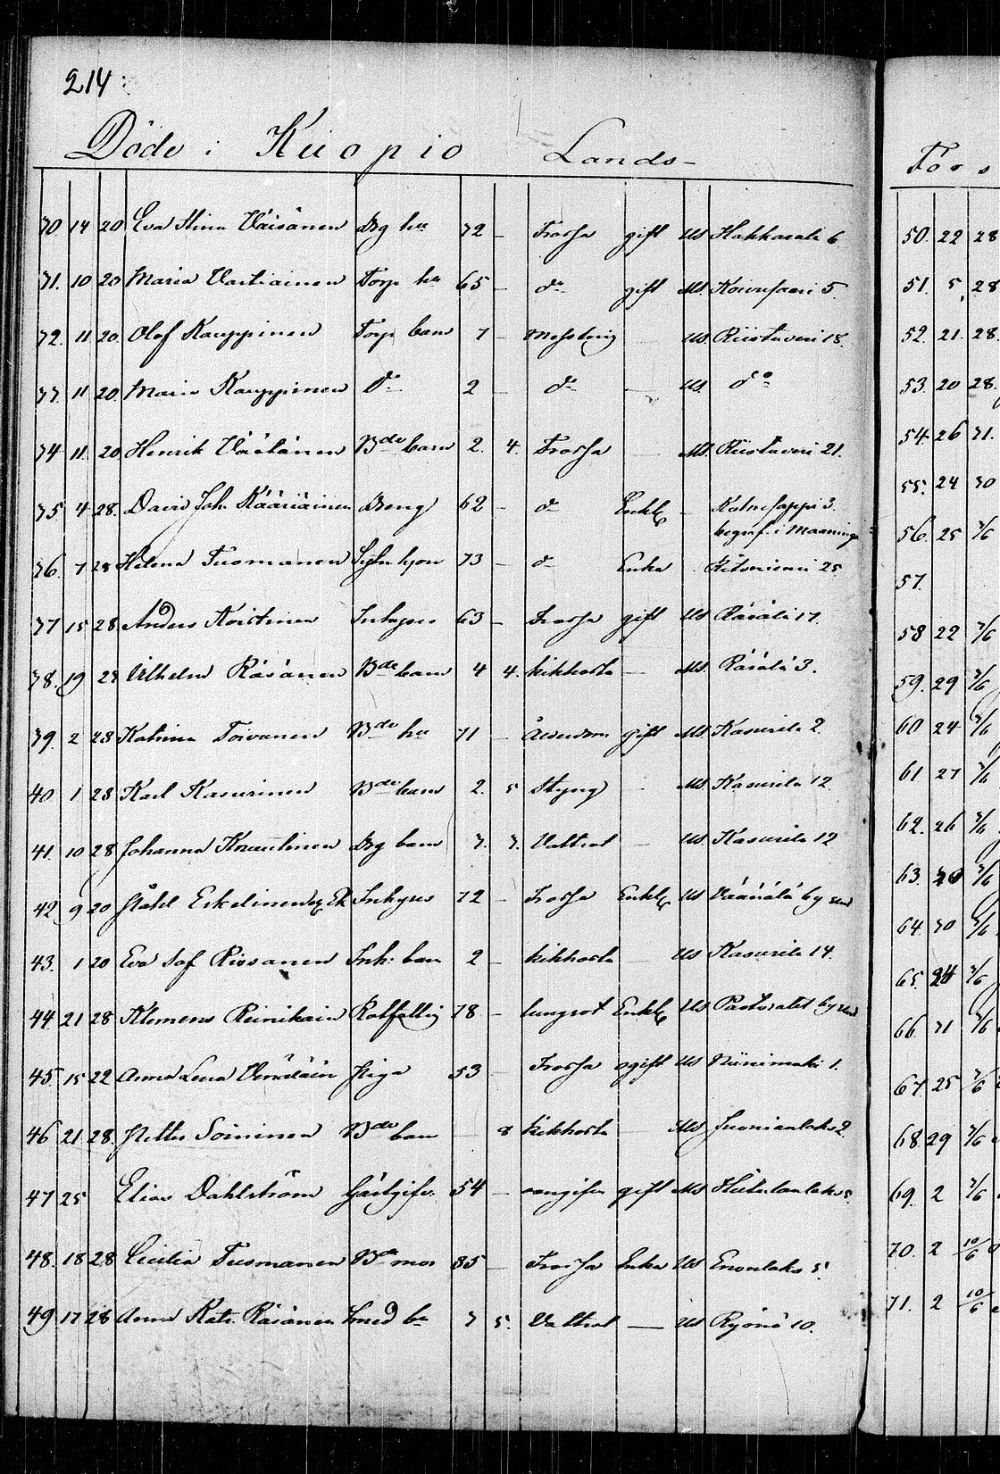 214
Döde i Kuopio Lands-
30. 14 20 Eva Stina Väisänen Drg hu 72 - Frossa gift Us Hakkarala 6
31. 10 20 Maria Vartiainen Torp hu 65 - do gift Us. Kowasaari 5.
32. 11 20. Olof Kauppinen Torp barn 1 - Messling Us. Riistaveri 18.
33. 11 20. Maria Kauppinen do 2 - do - Us. do
34 11. 20 Henrik Väätänen Bde barn 2. 4. Frossa Us. Riistaveri 21.
35 4 28. David Joh. Kääriäinen Dreng 62 - d Enkl. - Kolmisoppi 3.
begraf. i Maaninga
36. 7 28 Helena Tuomanen 73 - d Enka 25
37 15 28 Anders Koistinen Inhyses 63 - Frossa gift Us Räsälä 17.
38. 19 29 Vilhelm Räsänen Bde barn 4 4. kikhosta - Us. Räsälä 3.
39. 2 28 Katrina Toivanen Bde hu 71 - Ålderdom gift Us Kasurila 2.
40 1 28 Karl Kasurinen Bde barn 2. 5 Styng Us. Kasurila 12
41. 10 28 Johanna Knuutinen Drg barn 3. 3. Vattsot - Us Kasurila 12
42 9 20 Ståhl Eskelinen Inhyses 72 - Frossa Enkl. Us Väänälä by
43. 1 20 Eva Sof Rissanen Inh. barn 2 - kikhosta Us Kasurila 14.
44 21 28 Klemens Reinikain Rotfattig 78 - lungsot Enkl. Us Pastoralet by
45. 15 22 Anna Lena Piga 53 - Frossa ogift Us Niinimäki 1.
46 21 28. Petter Soininen Bde barn 8 kikhosta Us. Juonianlaks 2.
47 25 Elias Dahlström Gästgifv. 54 - gift Us
48. 18 28 Cecilia Tusmanen Bde mor 85 - Frossa Enka Us Enonlaks 5.
49 17 28 Anna Katr. Räsänen Smed b. 3 5. Vattsot - Us Ryönä 10.
Förs
50. 22 28
51. 5 28
52. 21 28.
53. 20 28.
54 26 31.
55. 24 30
56. 25 3/6
57.
58 22 3/6
59. 29 3/6
60 24 3/6
61 27 3/6
62. 26 3/6
63. 3/6
64. 30
65. 24 3/6
66. 31 3/6
67. 25 3/6
68. 29 3/6
69. 2 3/6
70. 2 10/6
71. 2 10/6